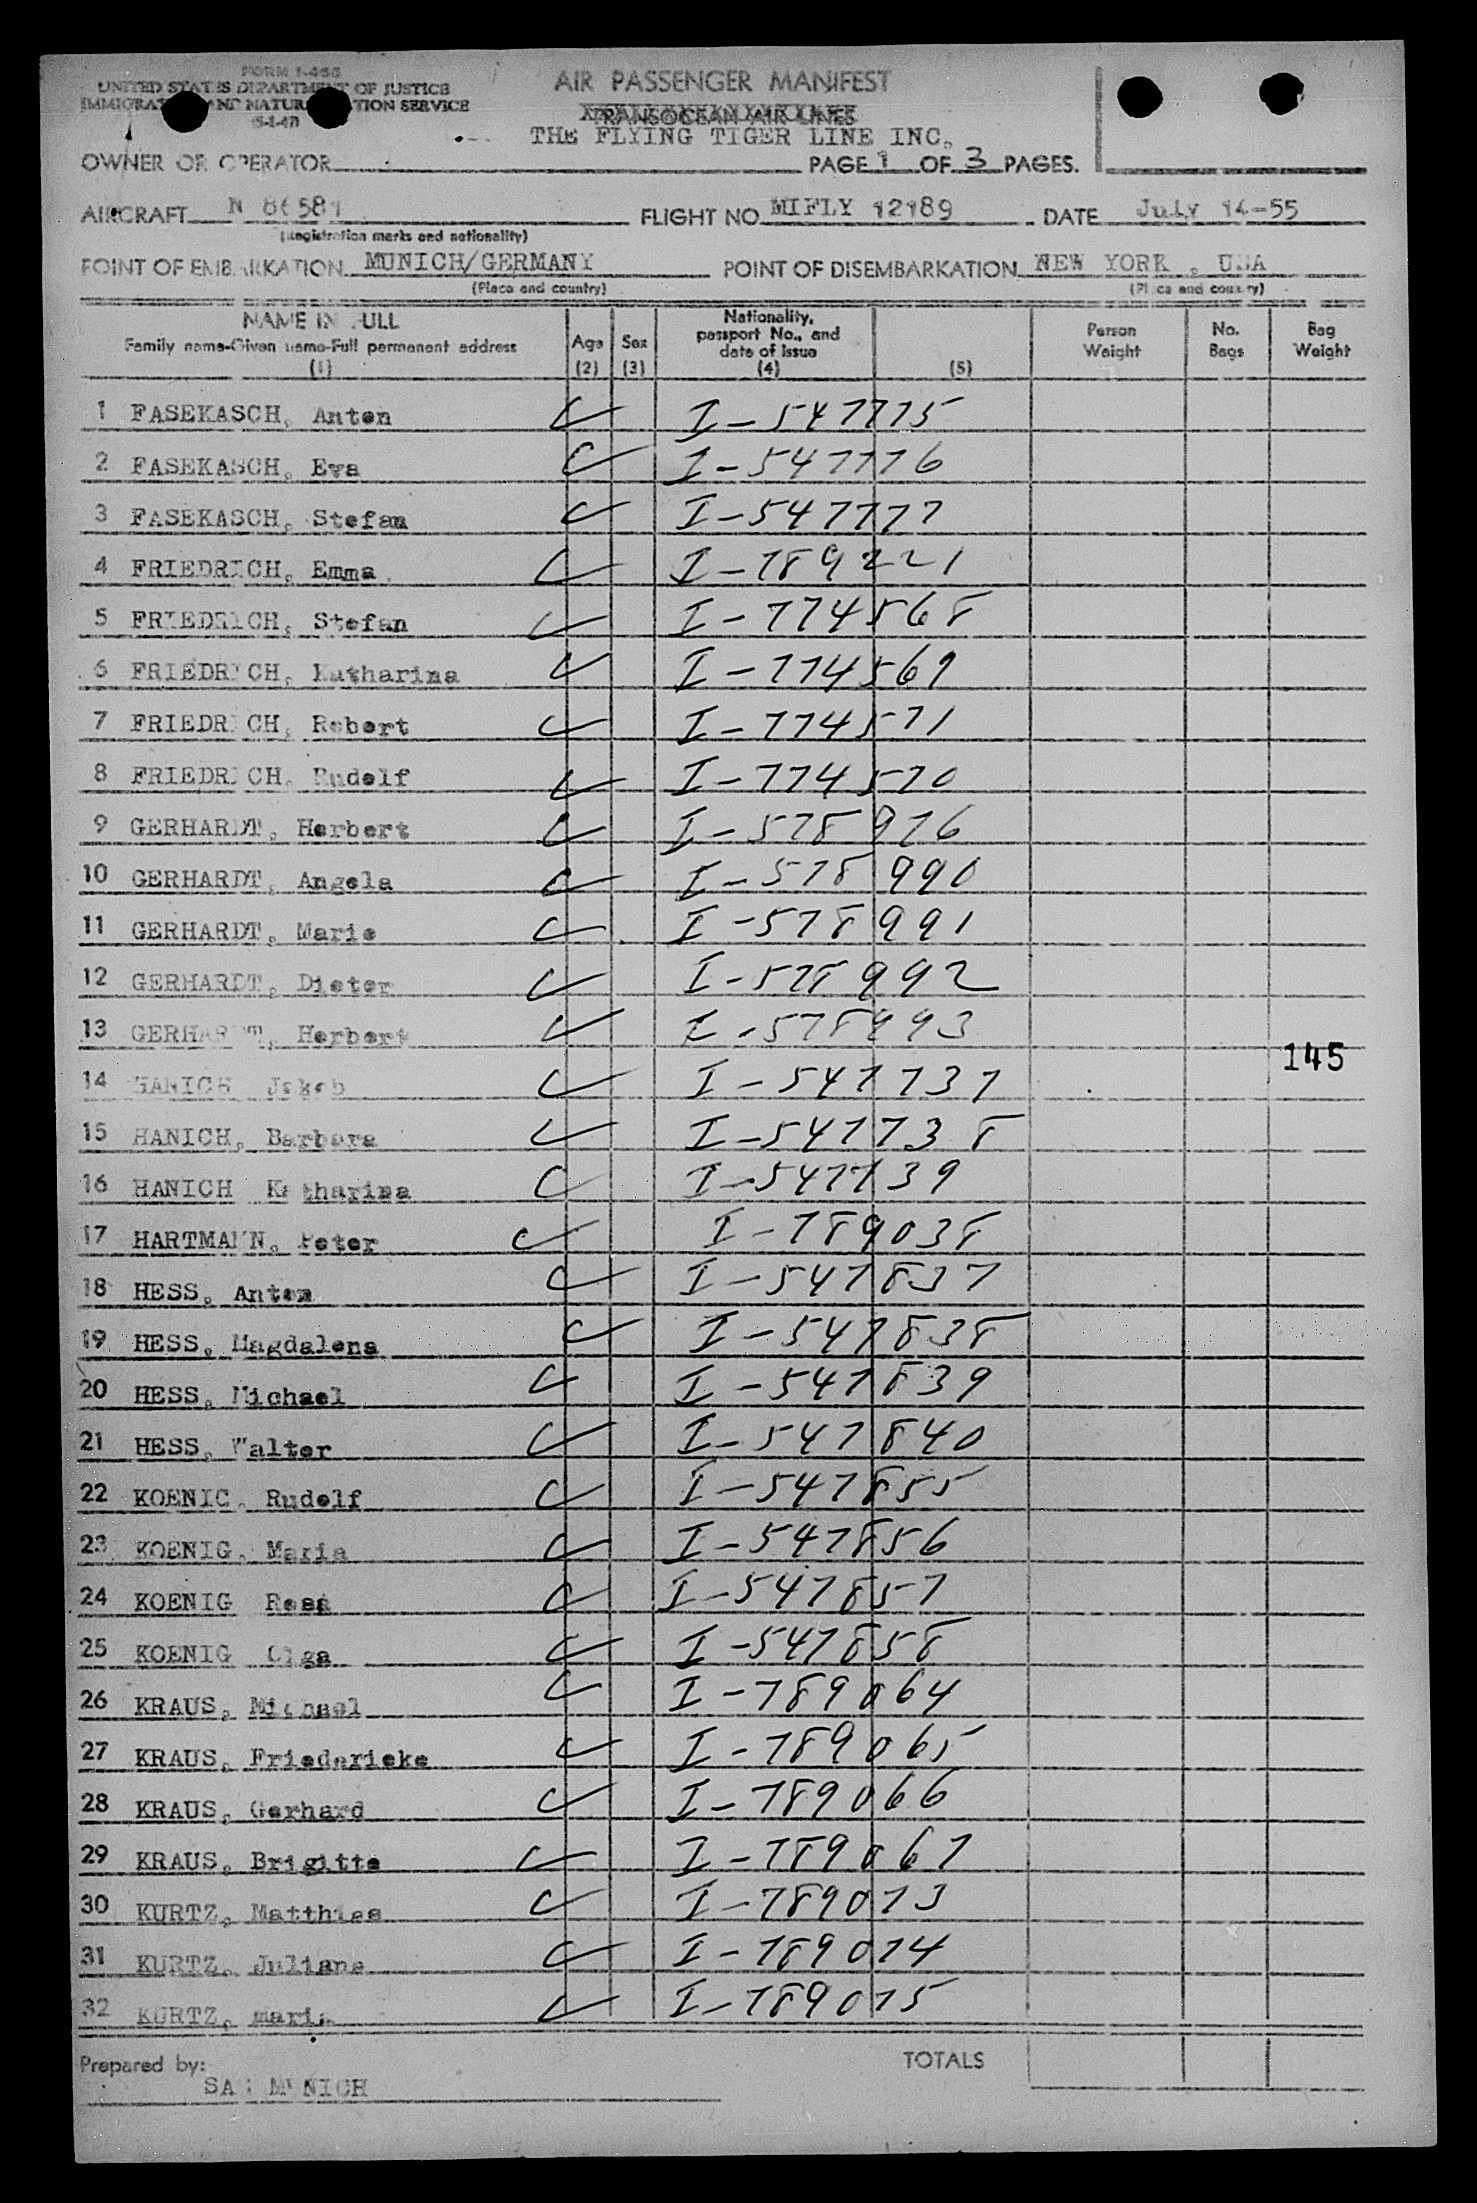 FORM I-466
UNITED STATES DEPARTMENT OF JUSTICE
IMMIGRATION AND NATURALIZATION SERVICE
(5-1-47)
AIR PASSENGER MANIFEST
TRANSOCEAN AIR LINES
THE FLYING TIGER LINE INC.
OWNER OR OPERATOR PAGE 1 OF 3 PAGES.
AIRCRAFT N 86581 FLIGHT NO. MIFLY 12189 DATE July 14-55
(Registration marks and nationality)
POINT OF EMBARKATION MUNICH/GERMANY POINT OF DISEMBARKATION NEW YORK, USA
(Place and country) (Place and country)
NAME IN FULL
Family name-Given name-Full permanent address
(1)
Age
(2)
Sex
(3)
Nationality,
passport No., and
date of issue
(4)
(5)
Person
Weight
No.
Bags
Bag
Weight
1 FASEKASCH, Anton I-547775
2 FASEKASCH, Eva I-547776
3 FASEKASCH, Stefan I-547777
4 FRIEDRICH, Emma I-789221
5 FRIEDRICH, Stefan I-774568
6 FRIEDRICH, Katharina I-774569
7 FRIEDRICH, Robert I-774571
8 FRIEDRICH, Rudolf I-774570
9 GERHARDT, Herbert I-578976
10 GERHARDT, Angela I-578990
11 GERHARDT, Marie I-578991
12 GERHARDT, Dieter I-578992
13 GERHARDT, Herbert I-578993
145
14 HANICH Jakob I-547737
15 HANICH, Barbara I-547738
16 HANICH Katharina I-547739
17 HARTMANN, Peter I-789038
18 HESS, Anton I-547837
19 HESS, Magdalena I-547838
20 HESS, Michael I-547839
21 HESS, Walter I-547840
22 KOENIG, Rudolf I-547855
23 KOENIG, Maria I-547856
24 KOENIG Rosa I-547857
25 KOENIG Olga I-547858
26 KRAUS, Michael I-789064
27 KRAUS, Friederieke I-789065
28 KRAUS, Gerhard I-789066
29 KRAUS, Brigitte I-789067
30 KURTZ, Matthias I-789073
31 KURTZ, Juliane I-789074
32 KURTZ, Maria I-789075
Prepared by: TOTALS
MUNICH